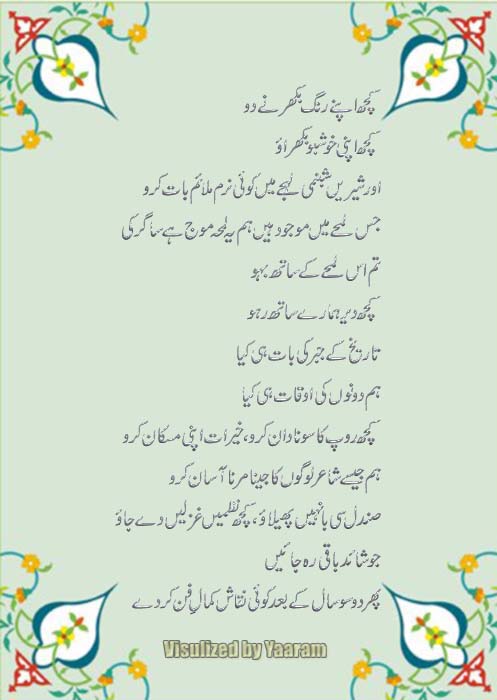 کچھ اپنے رنگ بکھرنے دو
کچھ اپنی خوشبو بکھراؤ
اور شیریں شبنمی لہجے میں کوئی نرم ملائم بات کرو
جس لمحے میں موجود ہیں ہم یہ لمحہ موج ہے ساگر کی
تم اس لمحے کے ساتھ بہو
کچھ دیر ہمارے ساتھ رہو
تاریخ کے جبر کی بات ہی کیا
ہم دونوں کی اوقات ہی کیا
کچھ روپ کا سونا دان کرو، خیرات اپنی مسکان کرو
ہم جیسے شاعر لوگوں کا جینا مرنا آسان کرو
صندل سی بانہیں پھیلاؤ، کچھ نظمیں غزلیں دے جاؤ
جو شائد باقی رہ جائیں
پھر دو سو سال کے بعد کوئی نقاش کمالِ فن کر دے
Visulized by Yaaram